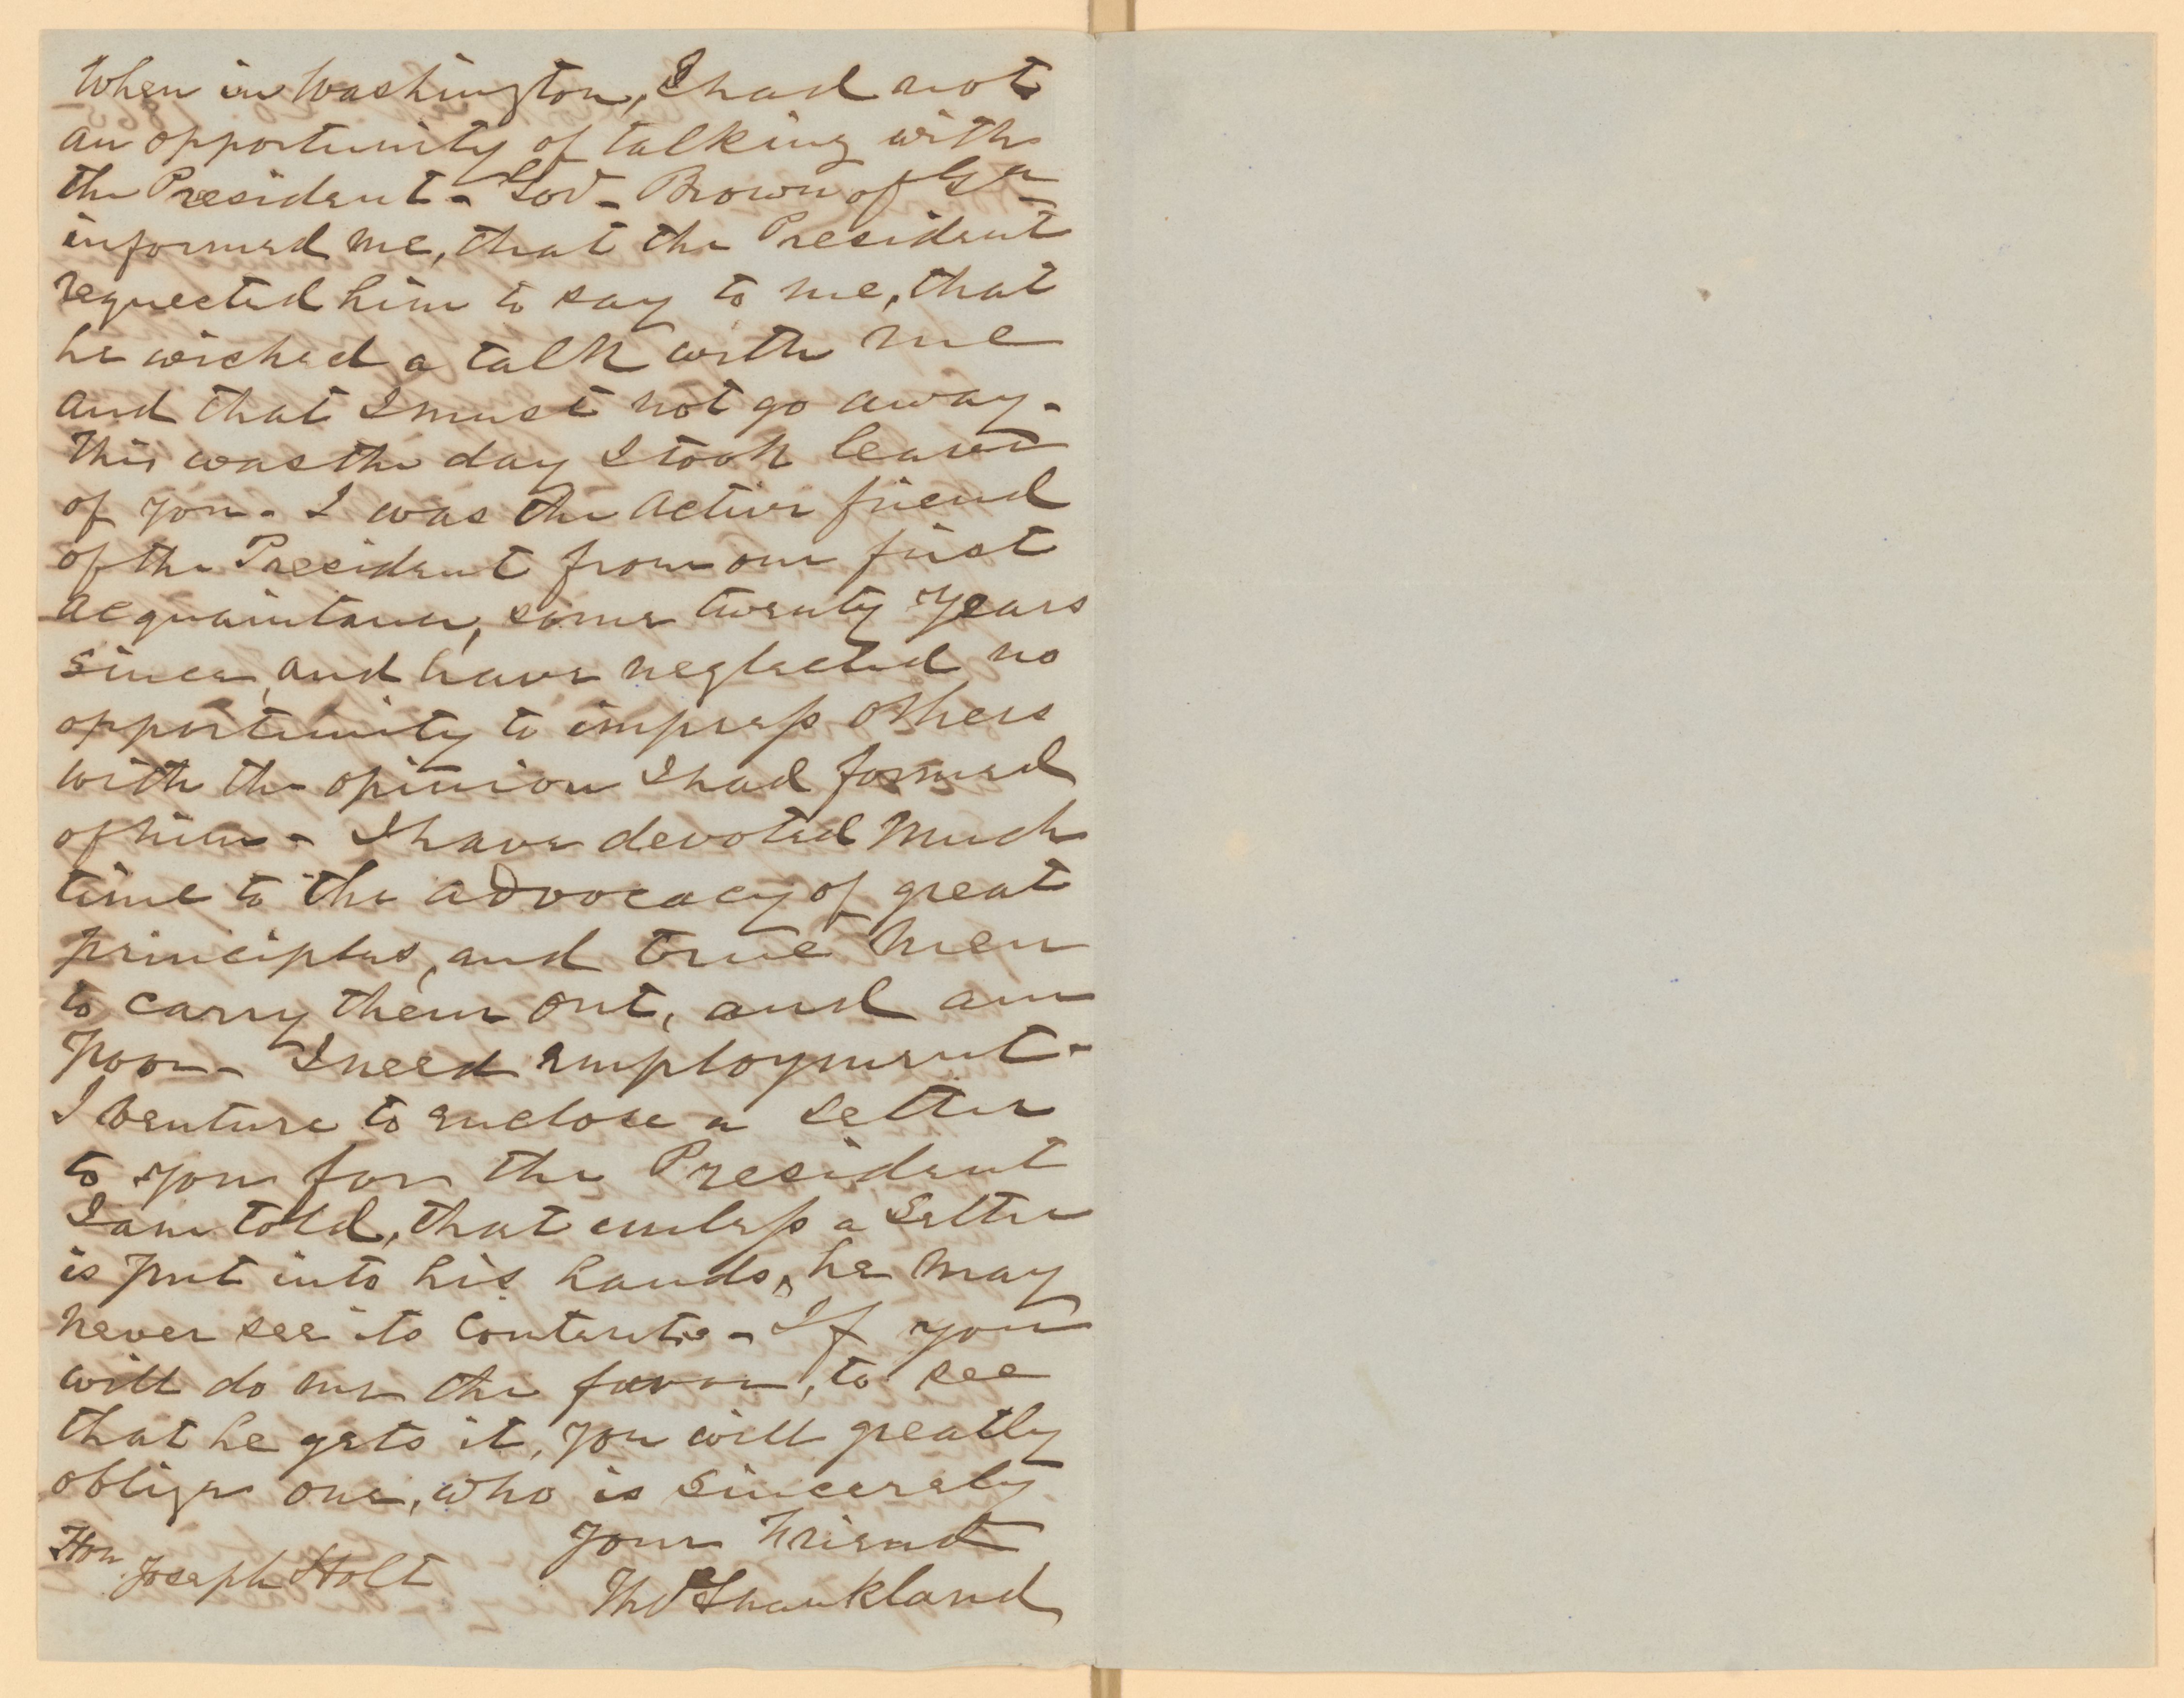 When in Washington, I had not
an opportunity of talking with
the President - Gov - Brown of Ga
informed me, that the President
requested him to say to me, that
he wished a talk with me
and that I must not go away -
This was the day I took leave
of you - I was the active friend
of the President from our first
acquaintance, some twenty years
since, and have neglected no
opportunity to impress others
with the opinion I had formed
of him - I have devoted much
time to the advocacy of great
principles, and true men
to carry them out, and am
poor - I need employment -
I venture to enclose a letter
to you for the President
I am told, that unless a letter
is put into his hands, he may
never see its contents - If you
will do me the favor, to see
that he gets it, you will greatly
oblige one, who is sincerely
Your Friend
Hon Joseph Holt
Tho Shankland